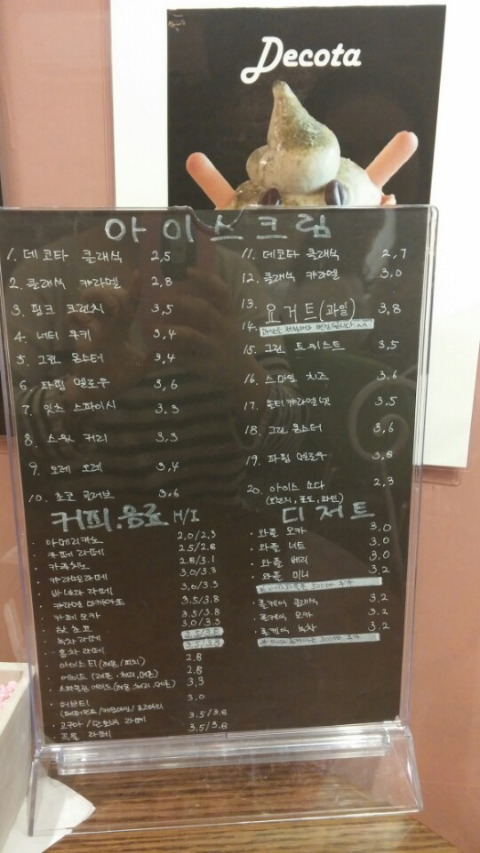 Decota
아이스크림
1. 데코타 클래식 2,5
2. 클래식 캬라멜 2,8
3. 핑크 크런치 3,5
4. 너티 쿠키 3,4
5. 그린 몬스터 3,4
6. 파핑 멜로우 3,6
7. 잇츠 스파이시 3,3
8. 스윗 커리 3,3
9. 오레 오레 3,4
10. 초코 3,6
11. 데코타 클래식 2,7
12. 클래식 캬라멜 3,0
13. 요거트(과일) 3,8
14.
15. 그린 트위스트 3,5
16. 스마일 치즈 3,6
17. 3,5
18. 그린 몬스터 3,6
19. 파핑 멜로우 3,8
20. 아이스 소다 2,3
커피.음료 H/I
· 아메리카노 2,0/2,3
· 카페 라떼 2,5/2,8
· 카푸치노 2,8/3,1
· 캬라멜라떼 3,0/3,3
· 바닐라 라떼 3,0/3,3
· 캬라멜 마끼아또 3,5/3,8
· 카페 모카 3,5/3,8
· 핫 초코 3,0/3,3
· 녹차 라떼
· 홍차 라떼 3,5/3,8
· 아이스티 2,8
· 에이드 2,8
3,3
· 허브티 3,0
· 고구마/단호박 라떼 3,5/3,8
라떼 3,5/3,8
디저트
· 와플 모카 3.0
· 와플 너트 3.0
· 와플 베리 3.0
· 와플 미니 3.2
· 롤케익 클래식 3.2
· 롤케익 모카 3.2
· 롤케익 녹차 3.2